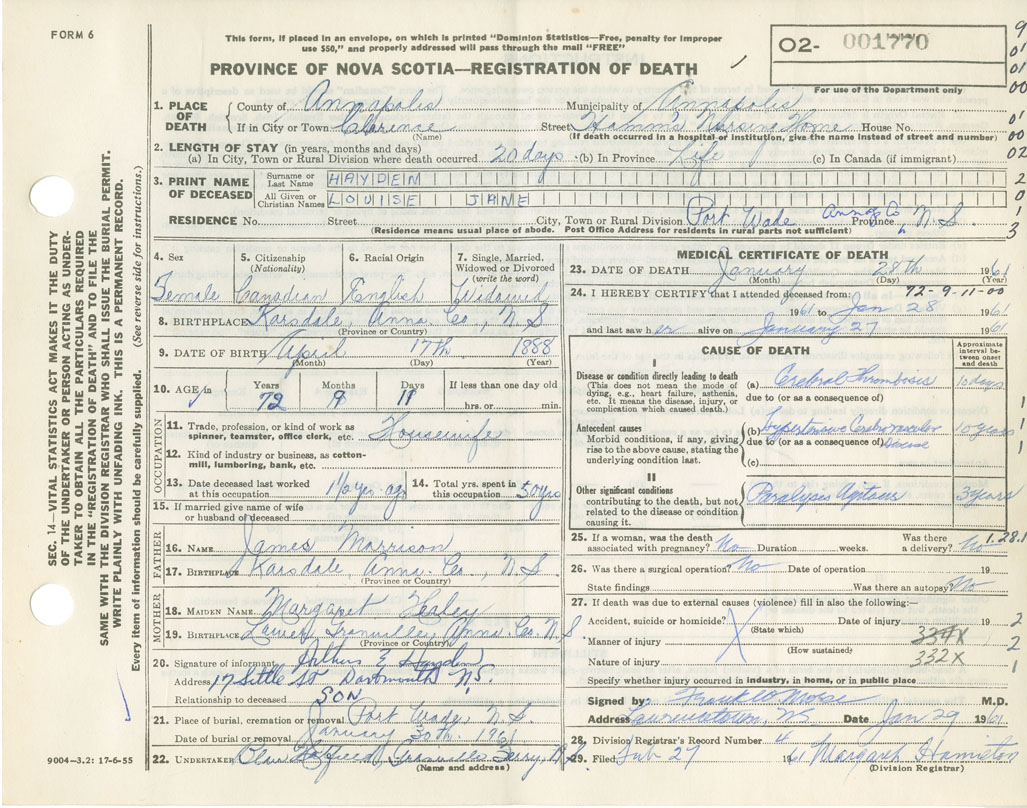 FORM 6
This form, if placed in an envelope, on which is printed "Dominion Statistics—Free, penalty for improper
use $50," and properly addressed will pass through the mail "FREE"
PROVINCE OF NOVA SCOTIA—REGISTRATION OF DEATH
O2- 001770
For use of the Department only
1. PLACE OF DEATH
County of Annapolis Municipality of Annapolis
If in City or Town Clarence Street Nursing Home House No.
(Name) (If death occurred in a hospital or institution, give the name instead of street and number)
2. LENGTH OF STAY (in years, months and days)
(a) In City, Town or Rural Division where death occurred 20 days (b) In Province Life (c) In Canada (if immigrant)
3. PRINT NAME OF DECEASED
Surname or Last Name HAYDEN
All Given or Christian Names LOUISE JANE
RESIDENCE No. Street City, Town or Rural Division Port Wade Annap Co Province N.S.
(Residence means usual place of abode. Post Office Address for residents in rural parts not sufficient)
4. Sex 5. Citizenship (Nationality) 6. Racial Origin 7. Single, Married, Widowed or Divorced (write the word)
Female Canadian English Widowed
8. BIRTHPLACE Karsdale, Anna. Co., N S
(Province or Country)
9. DATE OF BIRTH April 17th 1888
(Month) (Day) (Year)
10. AGE in Years Months Days If less than one day old
72 9 11 hrs. or min.
OCCUPATION
11. Trade, profession, or kind of work as
spinner, teamster, office clerk, etc. Housewife
12. Kind of industry or business, as cotton-
mill, lumbering, bank, etc.
13. Date deceased last worked at this occupation 1½ yrs. ago 14. Total yrs. spent in this occupation 50 yrs
15. If married give name of wife
or husband of deceased
FATHER
16. NAME James Morrison
17. BIRTHPLACE Karsdale, Anna. Co., N S
(Province or Country)
MOTHER
18. MAIDEN NAME Margaret
19. BIRTHPLACE Lower Granville, Anna Co. N.S.
(Province or Country)
20. Signature of informant Arthur E Hayden
Address 17 St Dartmouth N.S.
Relationship to deceased SON
21. Place of burial, cremation or removal Port Wade, N.S.
Date of burial or removal January 30th. 1961
22. UNDERTAKER Granville Ferry, N.S.
(Name and address)
MEDICAL CERTIFICATE OF DEATH
23. DATE OF DEATH January 28th 1961
(Month) (Day) (Year)
24. I HEREBY CERTIFY that I attended deceased from: 72-9-11-00
1961 to Jan 28 1961
and last saw her alive on January 27 1961
CAUSE OF DEATH
Approximate interval between onset and death
I
Disease or condition directly leading to death
(This does not mean the mode of
dying, e.g., heart failure, asthenia,
etc. It means the disease, injury, or
complication which caused death.)
(a) Cerebral Thrombosis 10 days
due to (or as a consequence of)
Antecedent causes
Morbid conditions, if any, giving
rise to the above cause, stating the
underlying condition last.
(b) Hypertensive Cerebrovascular 10 years
due to (or as a consequence of) Disease
(c)
II
Other significant conditions
contributing to the death, but not
related to the disease or condition
causing it.
Paralysis Agitans 3 years
25. If a woman, was the death Was there 1.28.1
associated with pregnancy? No Duration weeks. a delivery? No
26. Was there a surgical operation? No Date of operation 19
State findings Was there an autopsy? No
27. If death was due to external causes (violence) fill in also the following:—
Accident, suicide or homicide? Date of injury 19
(State which)
Manner of injury 334X
(How sustained)
Nature of injury 332X
Specify whether injury occurred in industry, in home, or in public place
Signed by Frank W Morse M.D.
Address Lawrencetown, NS Date Jan 29 1961
28. Division Registrar's Record Number 4
29. Filed Feb 27 1961 Margaret Hamilton
(Division Registrar)
SEC. 14—VITAL STATISTICS ACT MAKES IT THE DUTY
OF THE UNDERTAKER OR PERSON ACTING AS UNDER-
TAKER TO OBTAIN ALL THE PARTICULARS REQUIRED
IN THE "REGISTRATION OF DEATH" AND TO FILE THE
SAME WITH THE DIVISION REGISTRAR WHO SHALL ISSUE THE BURIAL PERMIT.
WRITE PLAINLY WITH UNFADING INK. THIS IS A PERMANENT RECORD.
Every item of information should be carefully supplied. (See reverse side for instructions.)
9004—3.2: 17-6-55
9
01
01
00
01
00
02
2
0
1
3
1
1
1
1
2
2
1